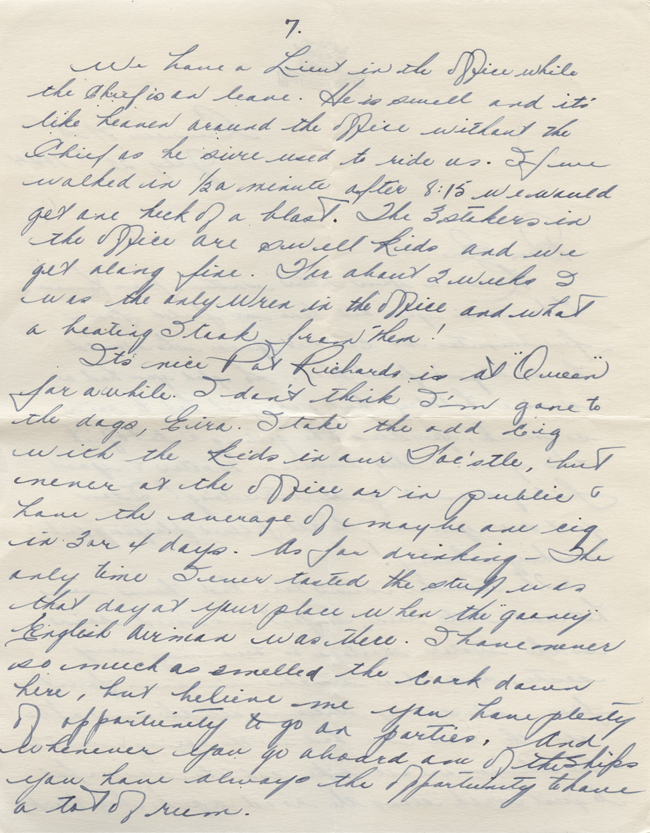 7.
We have a Lieut in the office while
the Chief is on leave. He is swell and it's
like heaven around the office without the
Chief as he sure used to ride us. If we
walked in 1/2 a minute after 8:15 we would
get one heck of a blast. The 3 stokers in
the office are swell kids and we
get along fine. For about 2 weeks I
was the only Wren in the office and what
a beating I took from them!
It's nice Pat Richards is at "Queen"
for awhile. I don't think I'm gone to
the dogs, Eira. I take the odd cig
with the kids in our Foc'stle, but
never at the office or in public &
have the average of maybe one cig
in 3 or 4 days. As for drinking - The
only time I ever tasted the stuff was
that day at your place when the gooney
English airman was there. I have never
so much as smelled the cork down
here, but believe me you have plenty
of opportunity to go on parties. And
whenever you go aboard one of the ships
you have always the opportunity to have
a tot of rum.